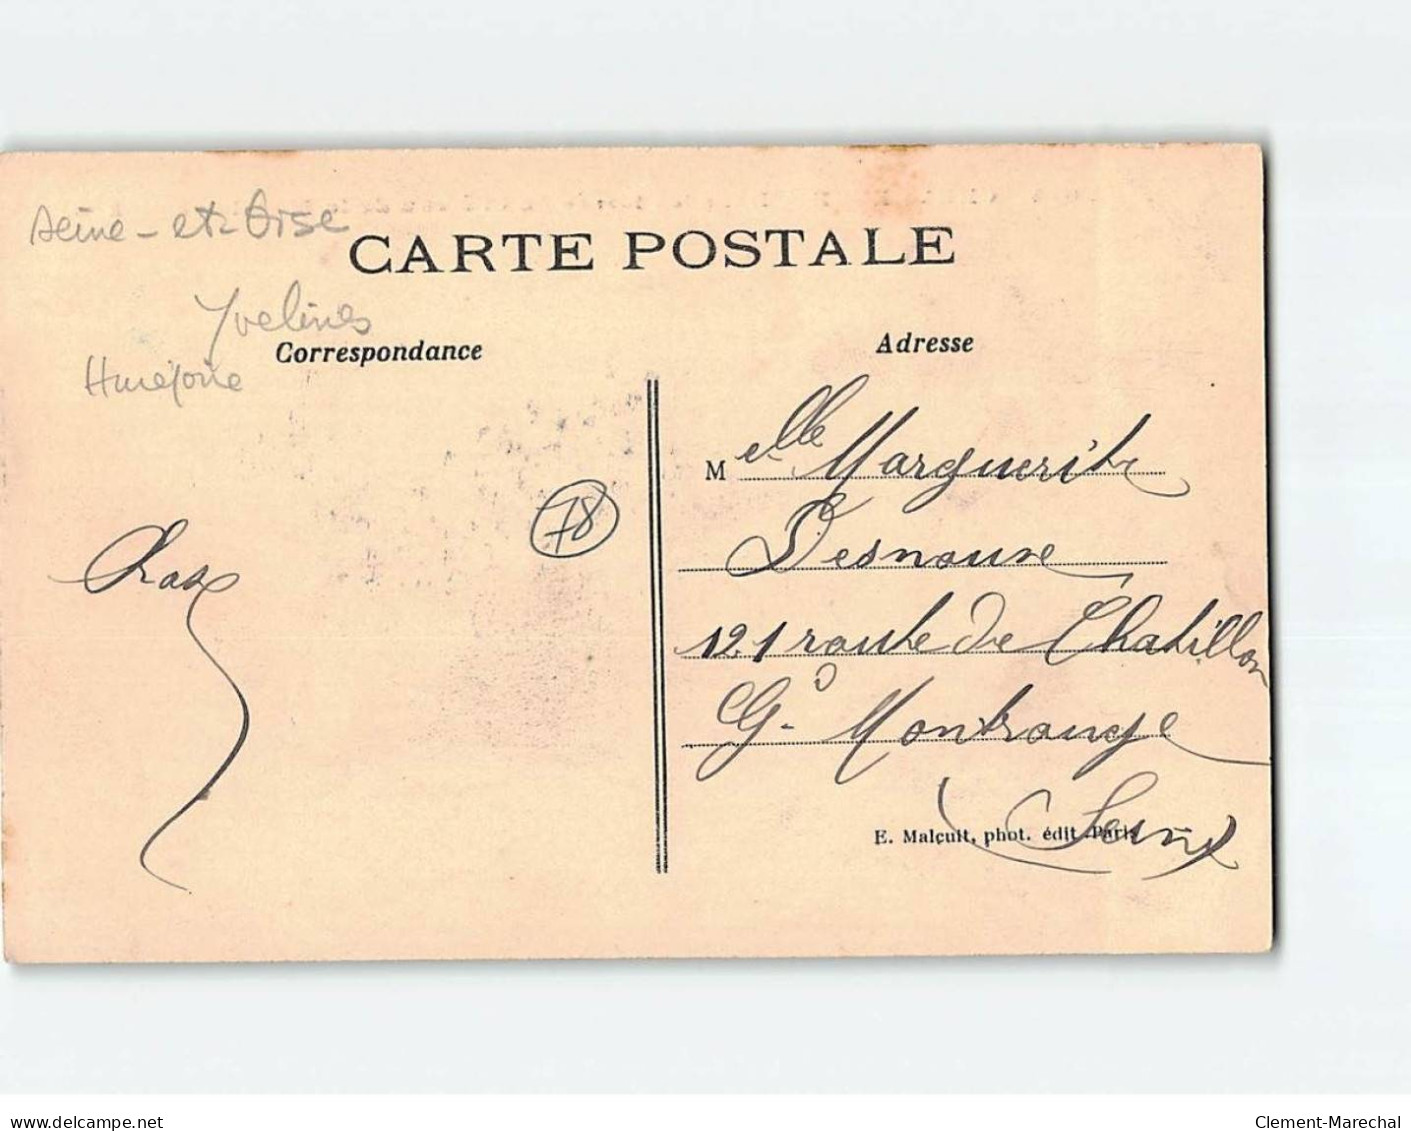 Seine-et-Oise
CARTE POSTALE
Yvelines
Correspondance
Adresse
M elle Marguerite
78
Desnoure
121 route de Chatillon
Gd Montrouge
Seine
E. Malcuit, phot. édit. Paris
www.delcampe.net
Clement-Marechal